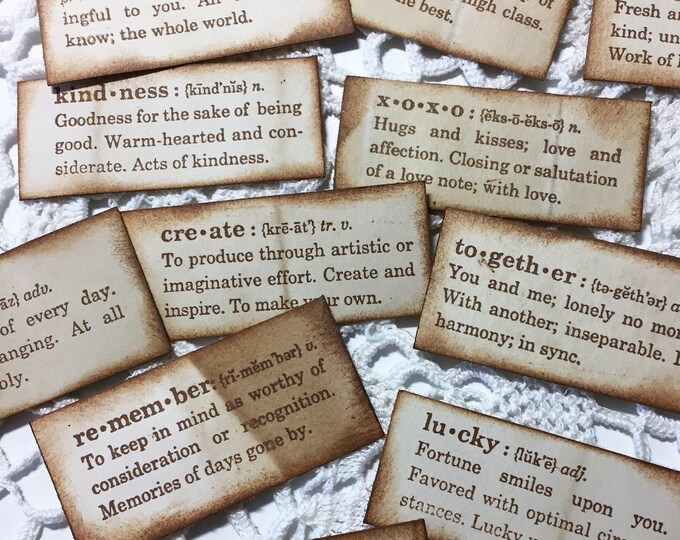 ingful to you. An
know; the whole world.
the best. high class.
Fresh
kind;
Work of
kind•ness: {kīnd'nĭs} n.
Goodness for the sake of being
good. Warm-hearted and con-
siderate. Acts of kindness.
x•o•x•o: {ĕks-ō-ĕks-ō} n.
Hugs and kisses; love and
affection. Closing or salutation
of a love note; with love.
cre•ate: {krē-āt'} tr. v.
To produce through artistic or
imaginative effort. Create and
inspire. To make your own.
to•geth•er: {tə-gĕth'ər}
You and me; lonely no
With another; inseparable.
harmony; in sync.
āz} adv.
of every day.
anging. At all
bly.
re•mem•ber: {rĭ-mĕm'bər} v.
To keep in mind as worthy of
consideration or recognition.
Memories of days gone by.
lu•cky: {lŭk'ē} adj.
Fortune smiles upon you.
Favored with optimal
stances. Lucky